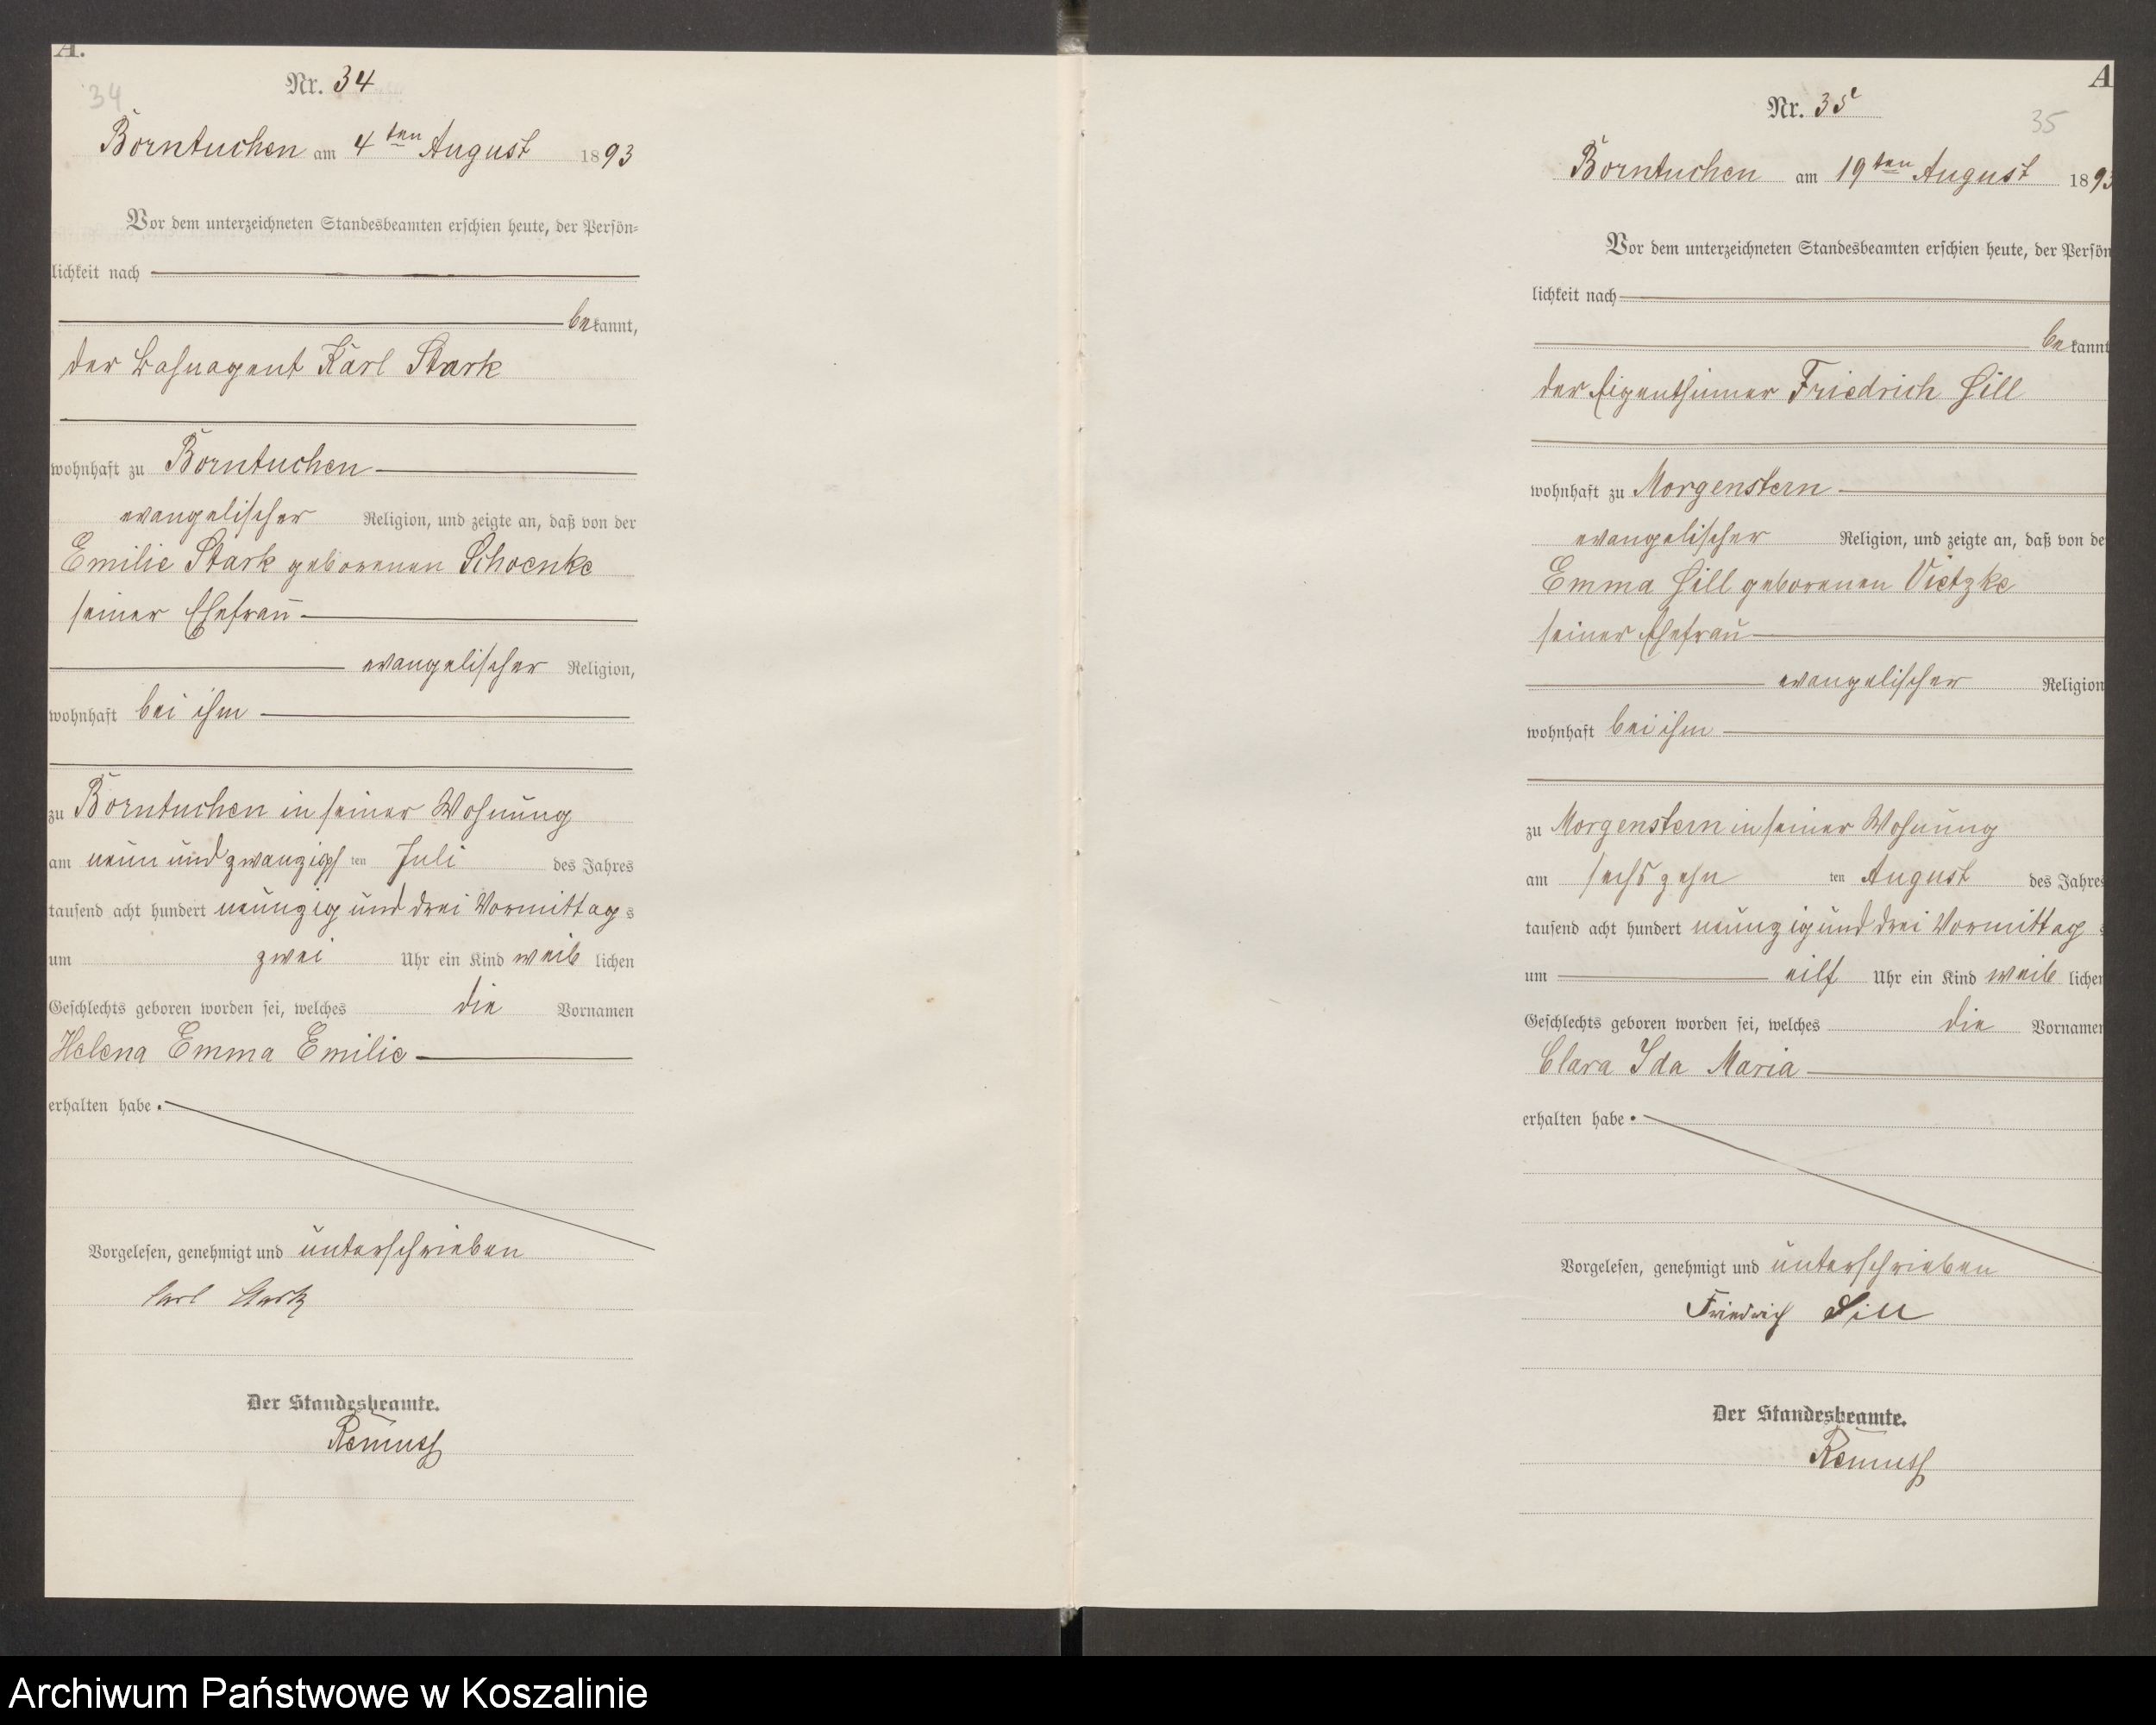 A.
34
Nr. 34
Borntuchen am 4ten August 1893
Vor dem unterzeichneten Standesbeamten erschien heute, der Persön-
lichkeit nach
bekannt,
der Bahnagent Karl Stark
wohnhaft zu Borntuchen
evangelischer Religion, und zeigte an, daß von der
Emilie Stark geborenen Schoenke
seiner Ehefrau
evangelischer Religion,
wohnhaft bei ihm
zu Borntuchen in seiner Wohnung
am neun und zwanzigst ten Juli des Jahres
tausend acht hundert neunzig und drei Vormittags
um zwei Uhr ein Kind weiblichen
Geschlechts geboren worden sei, welches die Vornamen
Helena Emma Emilie
erhalten habe.
Vorgelesen, genehmigt und unterschrieben
Carl Stark
Der Standesbeamte.
Remus
A
Nr. 35
35
Borntuchen am 19ten August 1893
Vor dem unterzeichneten Standesbeamten erschien heute, der Persön
lichkeit nach
bekannt
der Eigenthümer Friedrich Hill
wohnhaft zu Morgenstern
evangelischer Religion, und zeigte an, daß von de
Emma Hill geborenen Vietzke
seiner Ehefrau
evangelischer Religion
wohnhaft bei ihm
zu Morgenstern in seiner Wohnung
am sechszehn ten August des Jahres
tausend acht hundert neunzig und drei Vormittags
um eilf Uhr ein Kind weiblichen
Geschlechts geboren worden sei, welches die Vornamen
Clara Ida Maria
erhalten habe.
Vorgelesen, genehmigt und unterschrieben
Friedrich Hill
Der Standesbeamte.
Remus
Archiwum Państwowe w Koszalinie